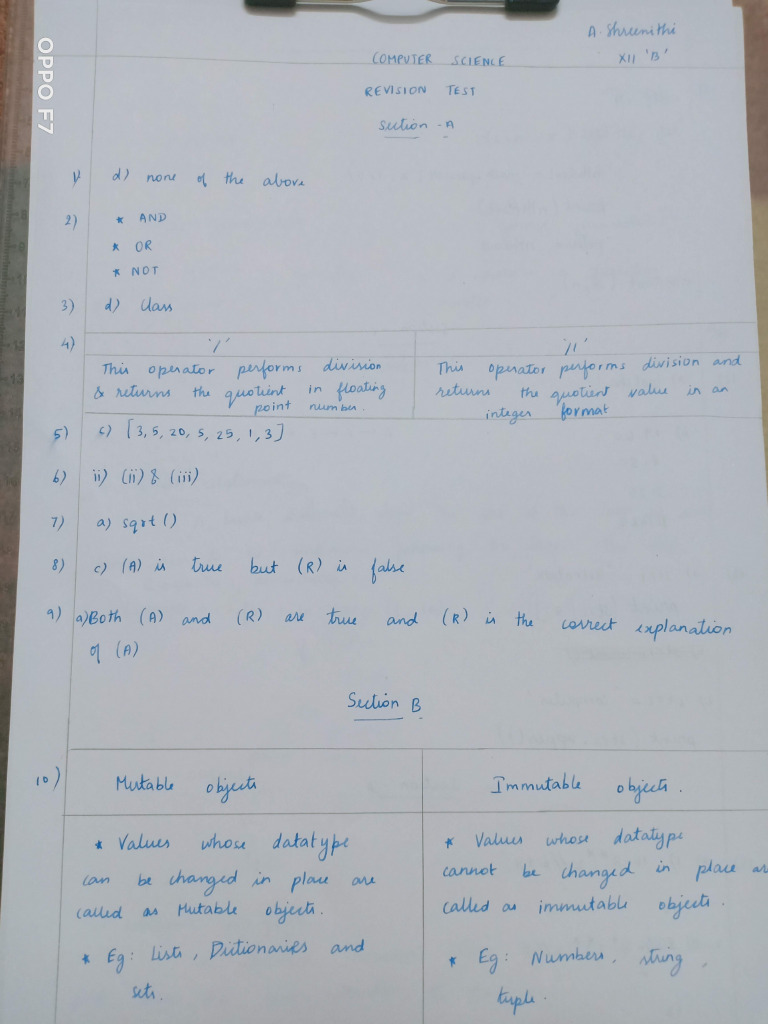 OPPO F7
A. Shreenithi
XII 'B'
COMPUTER SCIENCE
REVISION TEST
Section - A
1) d) none of the above
2) * AND
* OR
* NOT
3) d) Class
4) '/' '//'
This operator performs division
& returns the quotient in floating
point number.
This operator performs division and
returns the quotient value in an
integer format
5) c) [3, 5, 20, 5, 25, 1, 3]
6) ii) (ii) & (iii)
7) a) sqrt ()
8) c) (A) is true but (R) is false
9) a) Both (A) and (R) are true and (R) is the correct explanation
of (A)
Section B
10) Mutable objects Immutable objects.
* Values whose datatype
can be changed in place are
called as Mutable objects.
* Eg: Lists, Dictionaries and
sets.
* Values whose datatype
cannot be changed in place ar
called as immutable objects.
* Eg: Numbers, string,
tuple.